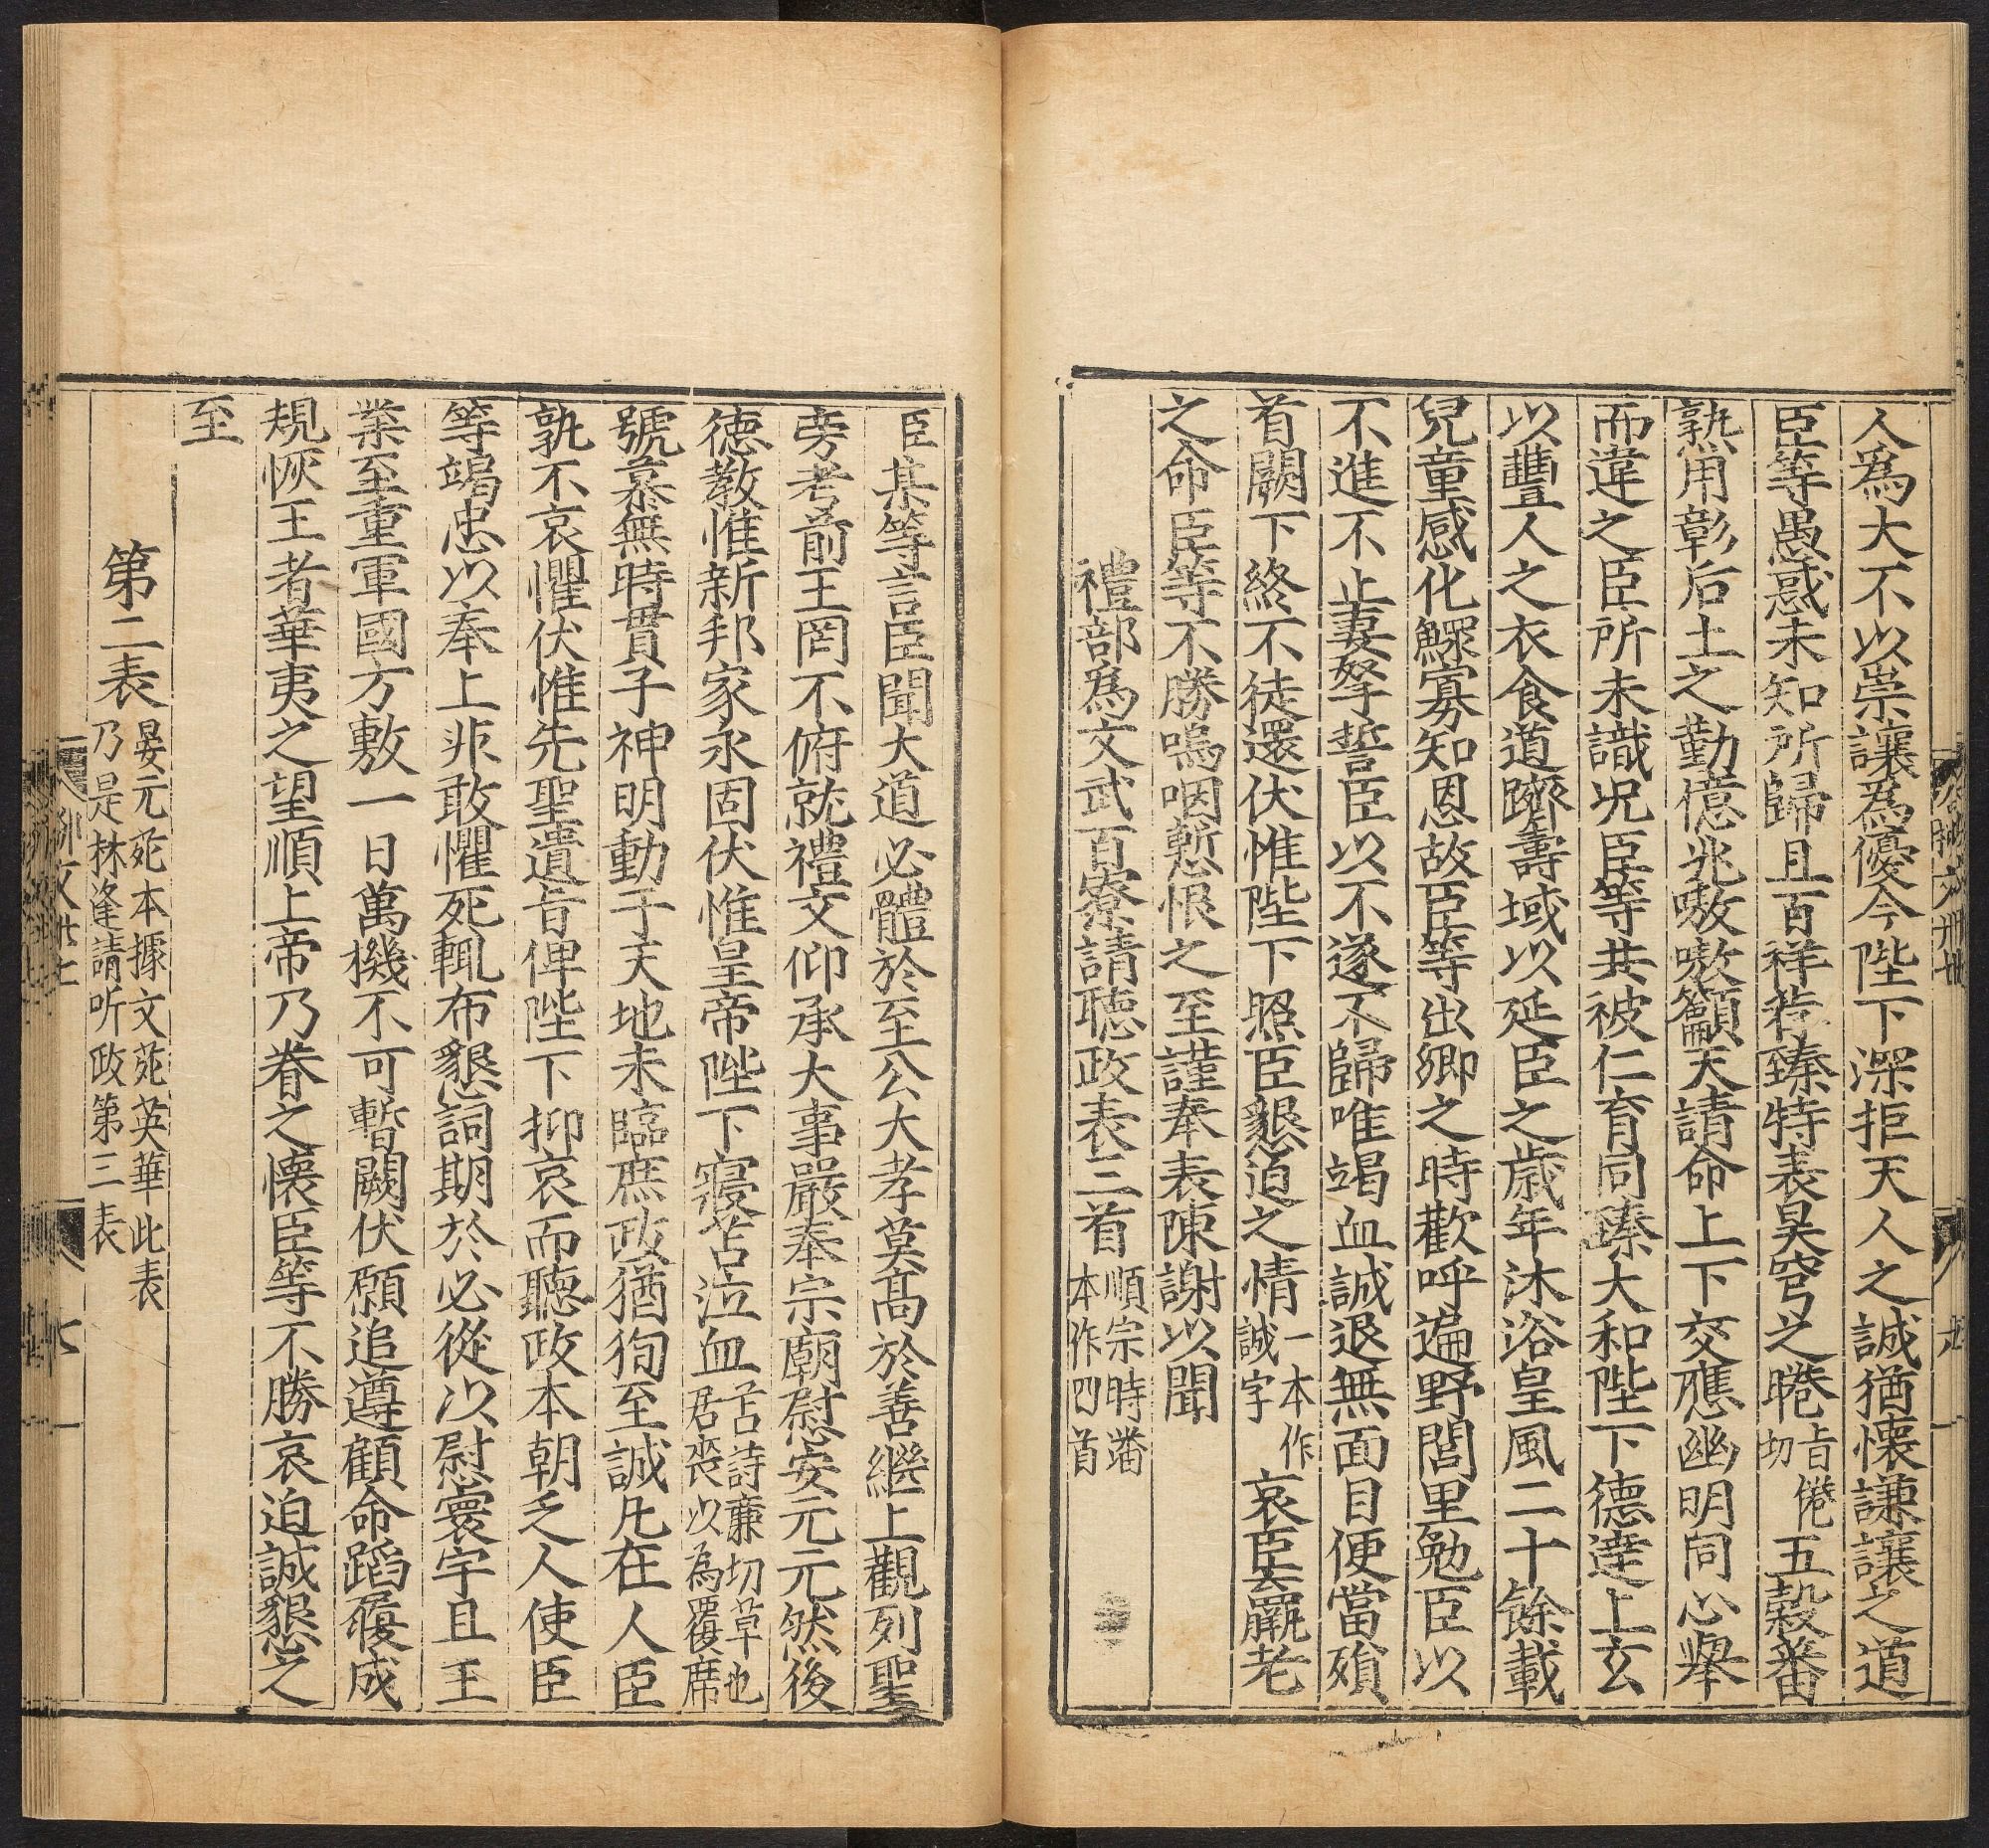 人爲大不以崇讓為優今陛下深拒天人之誠猶懷謙讓之道
臣等愚惑未知所歸且百祥荐臻特表昊穹之睠旨倦切五穀番
熟用彰后土之勤億兆嗷嗷籲天請命上下交應幽明同心舉
而違之臣所未識况臣等共被仁育同臻大和陛下德達上玄
以豐人之衣食道躋壽域以延臣之歳年沐浴皇風二十餘載
兒童感化鰥寡知恩故臣等出郷之時歡呼遍野閭里勉臣以
不進不止妻孥誓臣以不遂不歸唯竭血誠退無面目便當殞
首闕下終不徒還伏惟陛下照臣懇迫之情一本作誠字哀臣羸老
之命臣等不勝嗚咽慙恨之至謹奉表陳謝以聞
禮部爲文武百寮請聽政表三首順宗時諸本作四首
臣某等言臣聞大道必體於至公大孝莫髙於善繼上觀列聖
旁考前王罔不俯就禮文仰承大事嚴奉宗廟慰安元元然後
德教惟新邦家永固伏惟皇帝陛下寢苫泣血苫詩廉切草也君喪以為覆席
號慕無時貫于神明動于天地未臨庶政猶徇至誠凡在人臣
孰不哀懼伏惟先聖遺旨俾陛下抑哀而聽政本朝乏人使臣
等竭忠以奉上非敢懼死輒布懇詞期於必從以慰寰宇且王
業至重軍國方敷一日萬機不可暫闕伏願追遵顧命蹈履成
規恢王者華夷之望順上帝乃眷之懷臣等不勝哀迫誠懇之
至
第二表晏元苑本據文苑英華此表乃是林逢請听政第三表